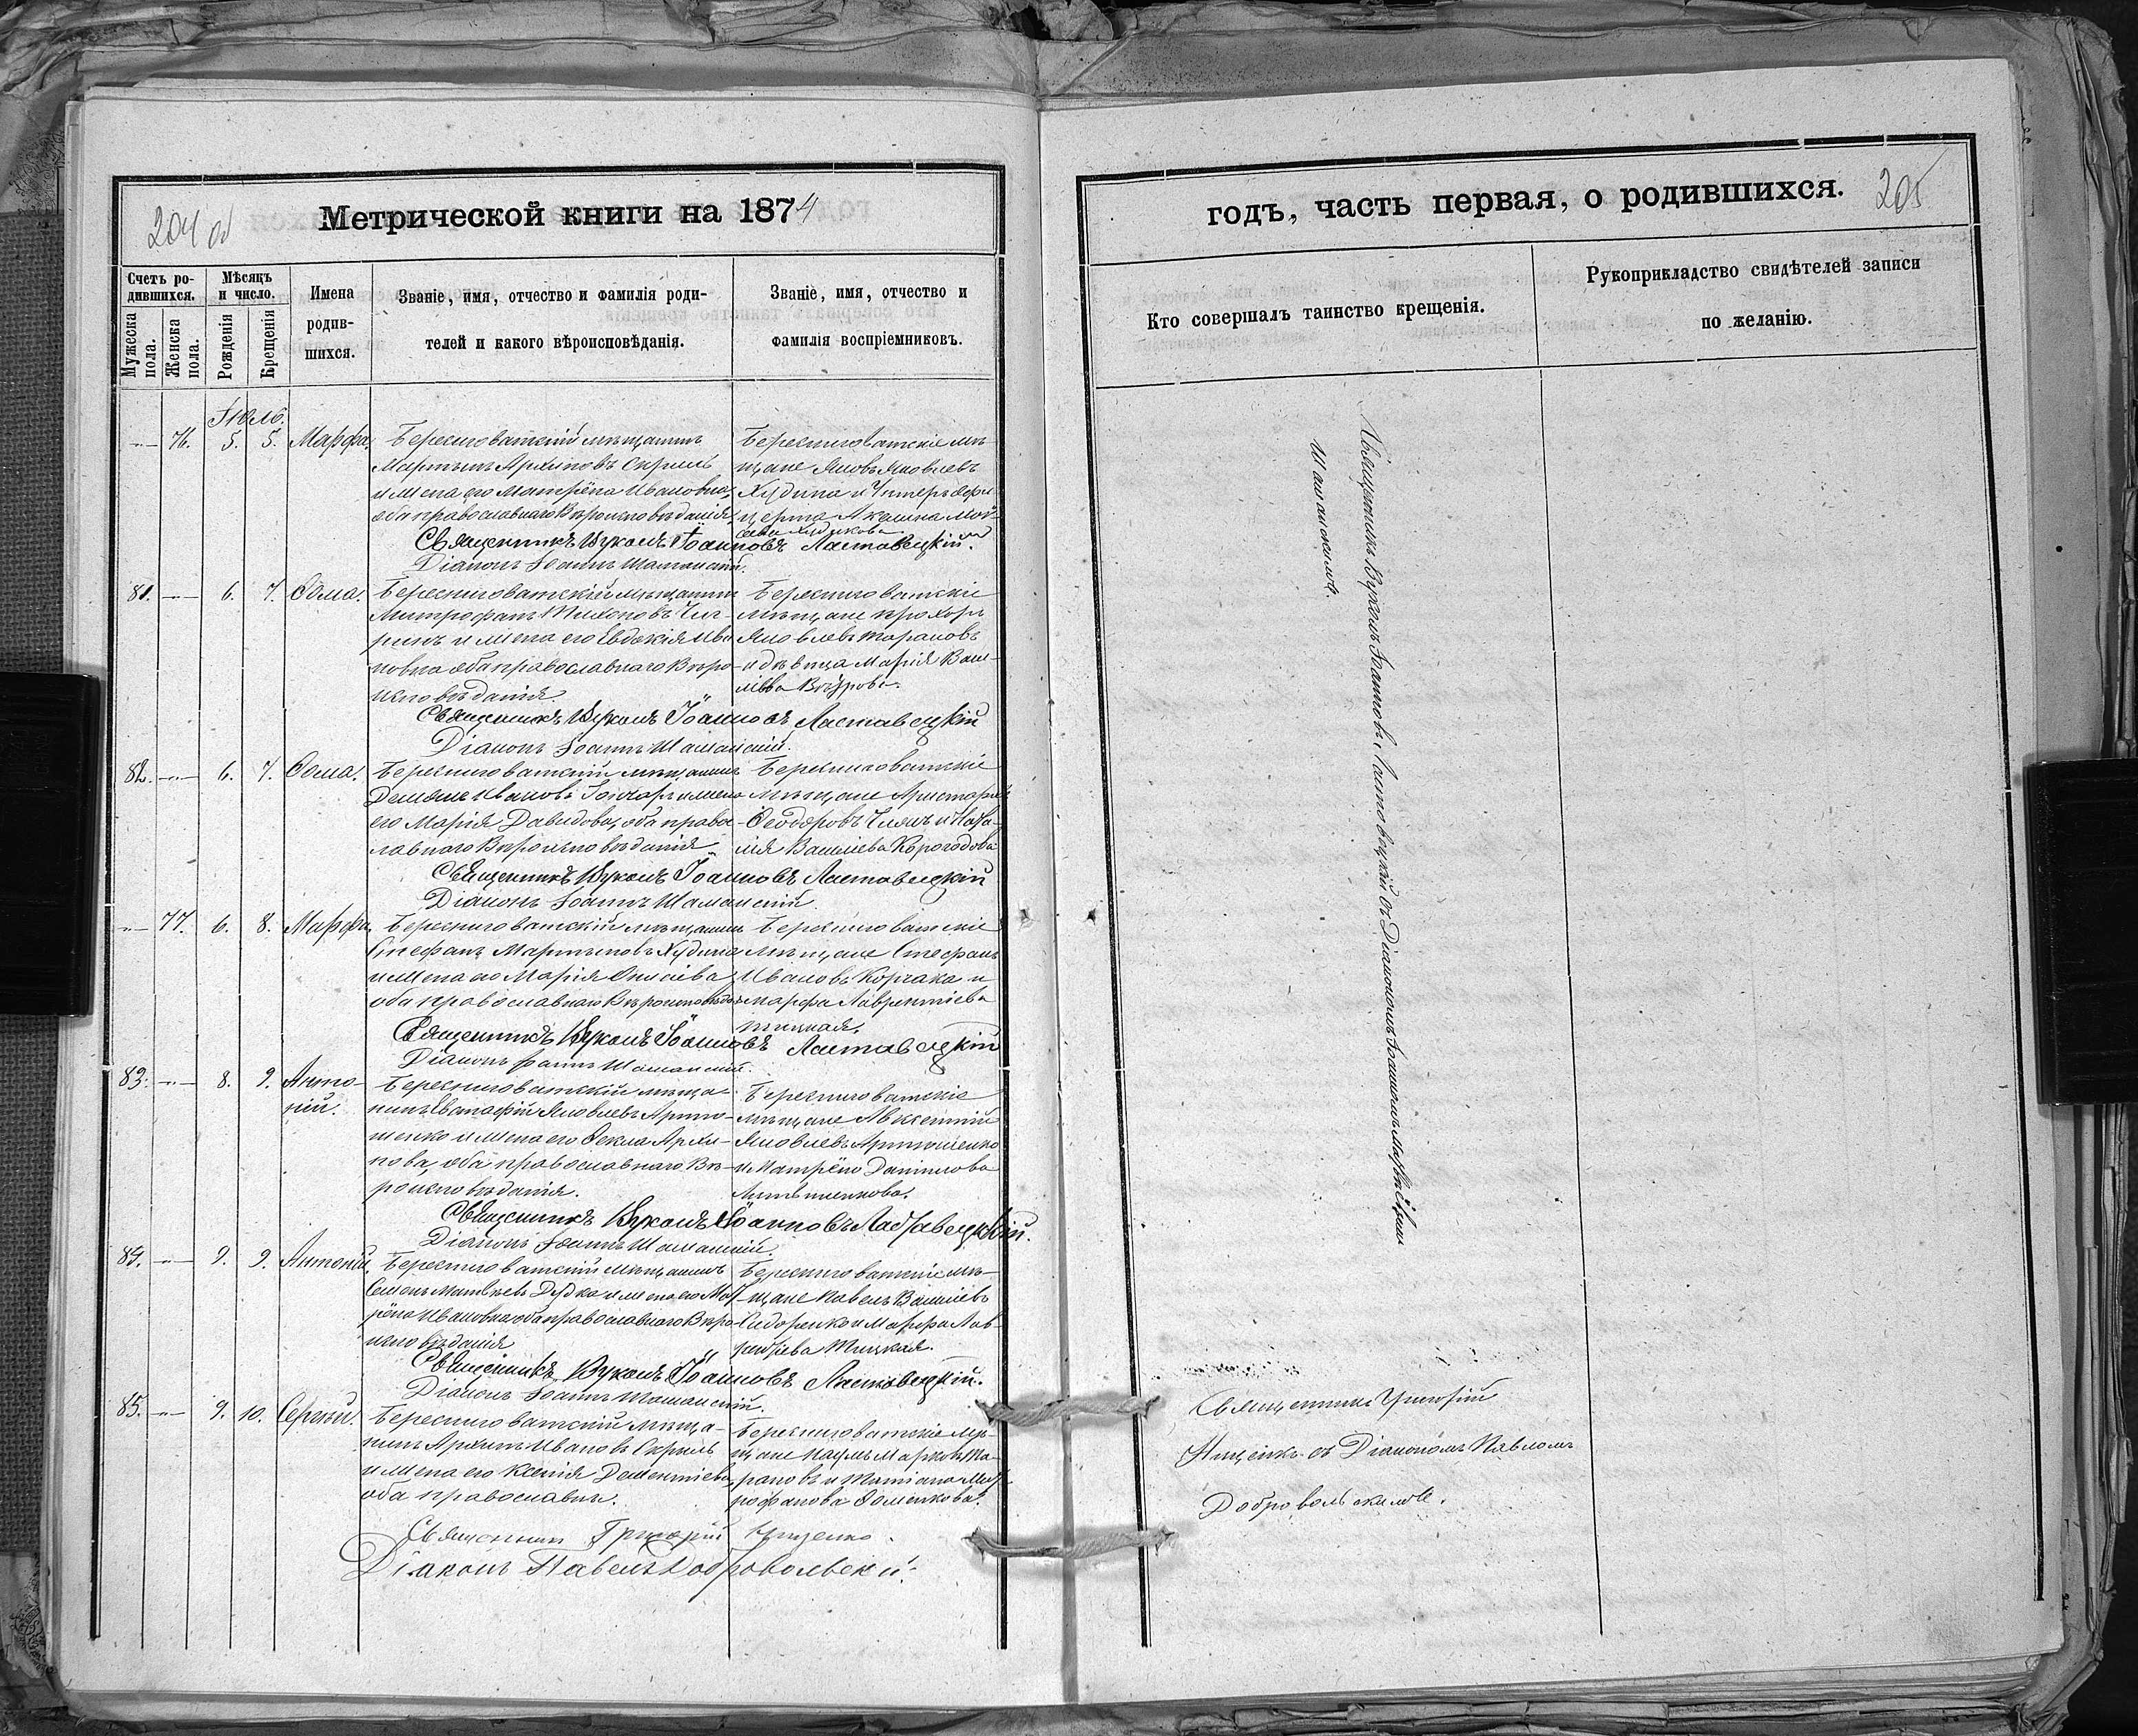 204 об
Метрической книги на 1874
Счетъ ро-
дившихся.
Мѣсяцъ
и число.
Мужеска
пола.
Женска
пола.
Рожденія
Крещенія
Имена
родив-
шихся.
Званіе, имя, отчество и фамилія роди-
телей и какого вѣроисповѣданія.
Званіе, имя, отчество и
фамилія воспріемниковъ.
Іюль.
76. 5. 5. Марфа.
Береснеговатскій мѣщанинъ
Мартынъ Архиповъ Скриль
и жена его Матрёна Ивановна,
оба православнаго Вѣроисповѣданія
Береснеговатскіе мѣ-
щане Яковъ Яковлевъ
Худина и
Акелина Мой-
Священникъ Вуколъ Іоанновъ Ластавецкій.
Діаконъ Іоаннъ Шаманскій.
81. 6. 7. Ѳома.
Береснеговатскій мѣщанинъ
Митрофанъ Тихоновъ Чиг-
ринъ и жена его Евдокія Ива
новна оба православнаго Вѣро-
исповѣданія.
Береснеговатскіе
мѣщане Прохоръ
Яковлевъ Тарановъ
и дѣвица Марія Васи-
Священникъ Вуколъ Іоанновъ Ластавецкій
Діаконъ Іоаннъ Шаманскій.
82. 6. 7. Ѳома.
Береснеговатскій мѣщанинъ
Демянъ Ивановъ и жена
его Марія Давидова, оба право-
славнаго Вѣроисповѣданія
Береснеговатскіе
мѣщане
Ѳеодоровъ и Ната-
лія Васильева Корогодова
Священникъ Вуколъ Іоанновъ Ластавецкій
Діаконъ Іоаннъ Шаманскій
77. 6. 8. Марфа,
Береснеговатскій мѣщанинъ
Стефанъ Мартыновъ Худина
и жена его Марія
оба православнаго
Береснеговатскіе
мѣщане Стефанъ
Ивановъ Корчака и
Марфа Лаврентіева
Тицкая.
Священникъ Вуколъ Іоанновъ Ластавецкій
Діаконъ Іоаннъ Шаманскій.
83. 8. 9. Анто-
ній.
Береснеговатскій мѣща-
нинъ Евстафій Яковлевъ Арто-
шенко и жена его Ѳекла Архи-
пова, оба православнаго Вѣ-
роисповѣданія.
Береснеговатскіе
мѣщане Авксентій
Яковлевъ Артюшенко
и Матрёна Данилова
Священникъ Вуколъ Іоанновъ Ластавецкій.
Діаконъ Іоаннъ Шаманскій.
84. 9. 9. Антоній.
Береснеговатскій мѣщанинъ
Семенъ Матвѣевъ Дудка и жена его Мат-
рёна Ивановна оба православнаго Вѣро-
исповѣданія
Береснеговатскіе мѣ-
щане Павелъ Василіевъ
Сидоренко и Марфа Лав-
рентьева Тицкая.
Священникъ Вуколъ Іоанновъ Ластавецкій.
Діаконъ Іоаннъ Шаманскій.
85. 9. 10. Сергѣй.
Береснеговатскій мѣща-
нинъ Архипъ Ивановъ Скриль
и жена его Ксенія Дементіева,
оба православны.
Береснеговатскіе мѣ-
щане Наумъ Марковъ Та-
рановъ и Татіана Мит-
рофанова Ѳоменкова.
Священникъ Григорій Нещенко.
Діаконъ Павелъ Добровольскій.
годъ, часть первая, о родившихся.
205
Кто совершалъ таинство крещенія.
Рукоприкладство свидѣтелей записи
по желанію.
Священникъ Вуколъ Іоанновъ Ластовецкій съ Діакономъ Іоанномъ
Шаманскимъ.
Священникъ Григорій
съ Діакономъ Павломъ
Добровольскимъ.